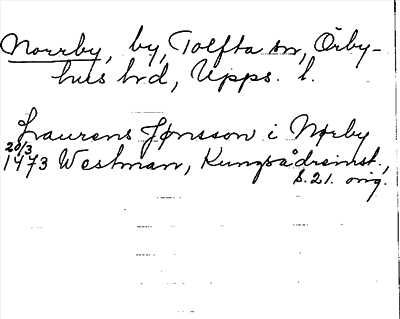 Norrby, by, Tolfta sn, Örby-
hus hd, Upps. l.
Laurens Jønsson i Nørby
20/3
1473 Westman, Kungsådreinst.,
s. 21. orig.